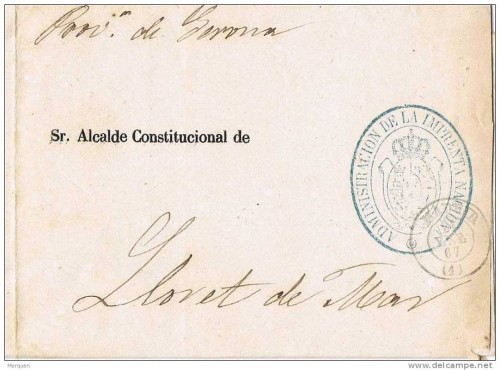 Provª de Gerona
Sr. Alcalde Constitucional de
ADMINISTRACION DE LA IMPRENTA NACIONAL
67
(4)
Lloret de Mar
Merquen
delcampe.net